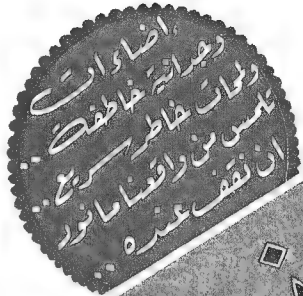 إضاءات
وجدانية خاطفة ..
ولمحات خاطر سريع ..
تلمس من واقعنا ما نود
ان نقف عنده ..